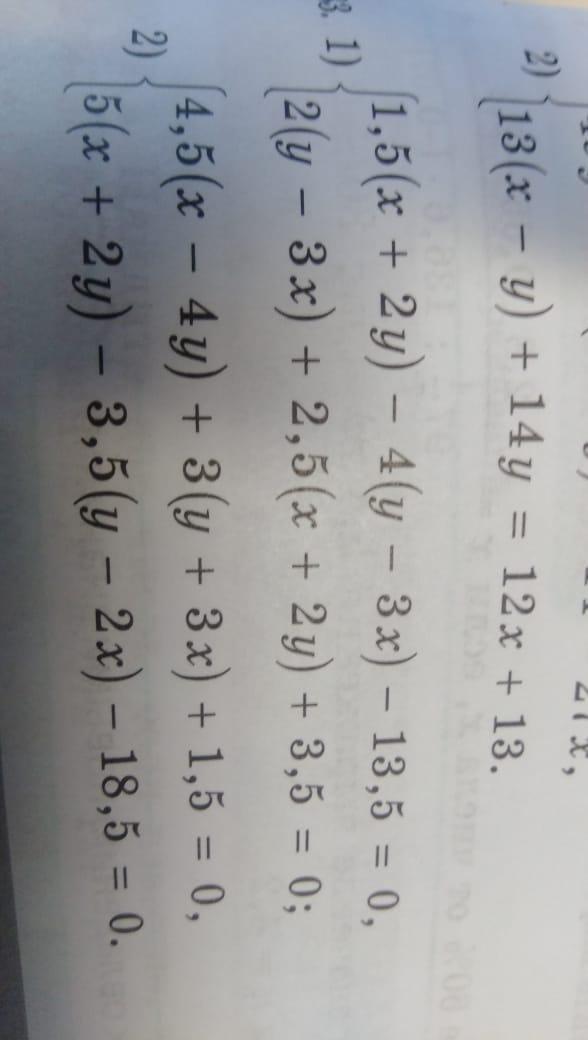 2)
13(x − y) + 14y = 12x + 13.
1) 1,5(x + 2y) − 4(y − 3x) − 13,5 = 0,
2(y − 3x) + 2,5(x + 2y) + 3,5 = 0;
2) 4,5(x − 4y) + 3(y + 3x) + 1,5 = 0,
5(x + 2y) − 3,5(y − 2x) − 18,5 = 0.